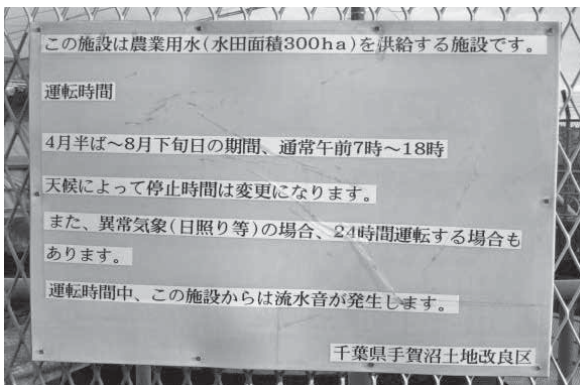 この施設は農業用水(水田面積300ha)を供給する施設です。
運転時間
4月半ば～8月下旬日の期間、通常午前7時～18時
天候によって停止時間は変更になります。
また、異常気象(日照り等)の場合、24時間運転する場合も
あります。
運転時間中、この施設からは流水音が発生します。
千葉県手賀沼土地改良区